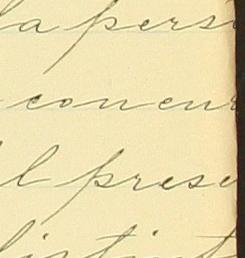 la pers
concur
l prese
distint